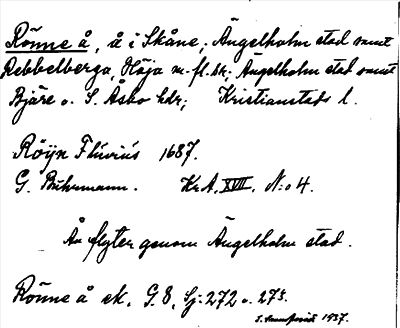 Rönne å, å i Skåne; Ängelholm stad samt
Rebbelberga, Höja m. fl. skr; Ängelholm stad samt
Bjäre o. S. Åsbo hdr; Kristianstads l.
Röijn Flúviús 1687.
G. Buhrmann. Kr.A. XVII, N:o 4.
Ån flyter genom Ängelholm stad.
Rönne å ek. G. 8, Sj: 272 o. 273.
1937.